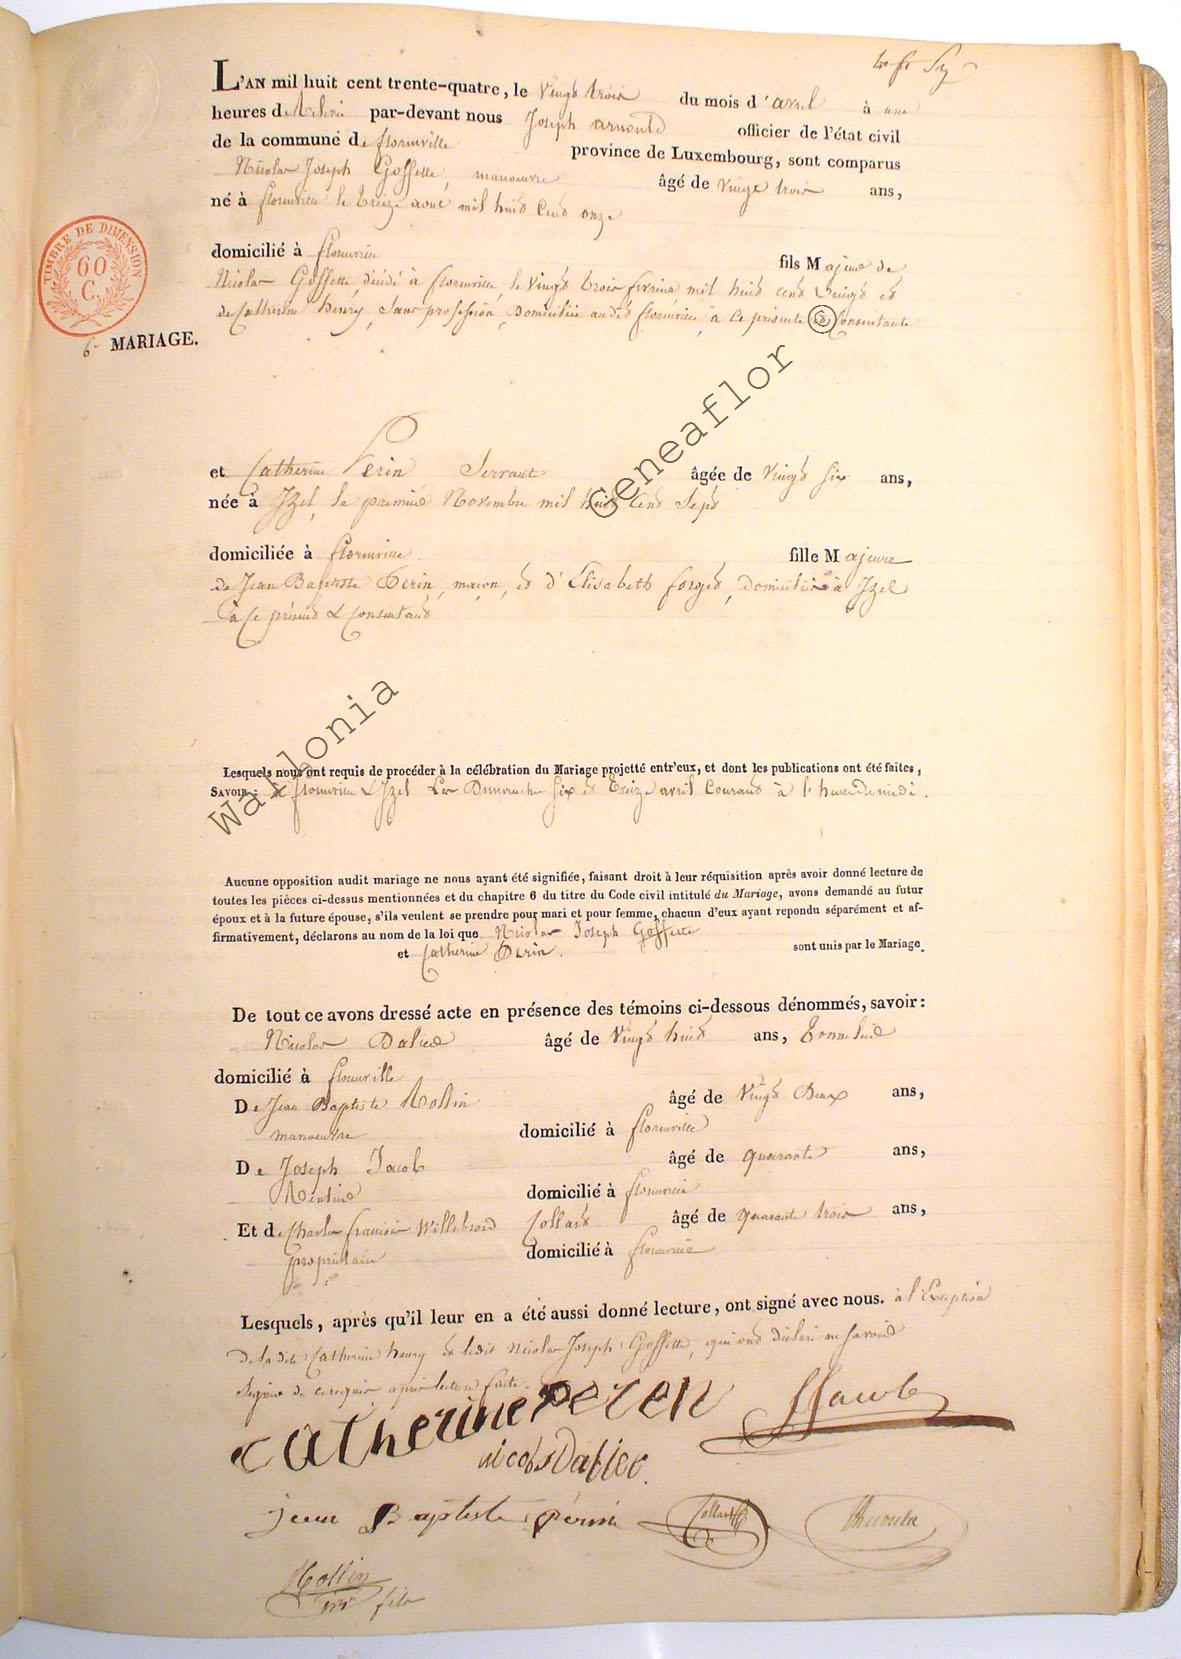 L'AN mil huit cent trente-quatre, le Vingt trois du mois d'avril à une
heures de relevée par-devant nous Joseph arnould officier de l'état civil
de la commune de florenville province de Luxembourg, sont comparus
Nicolas Joseph Goffette, manoeuvre âgé de vingt trois ans,
né à florenville le treize aout mil huit cent onze
TIMBRE DE DIMENSION
60
C.
domicilié à florenville fils Majeur de
Nicolas Goffette, décédé à florenville, le vingt trois fevrier mil huit cent Vingt et
de Catherine henry, sans profession, domiciliée audit florenville, à ce présente et Consentante
6e MARIAGE.
et Catherine Perin Servante âgée de vingt six ans,
née à Izel, le premier Novembre mil huit Cent Sept
domiciliée à florenville fille Majeure
de Jean Baptiste Perin, maçon, et d'Elisabeth forget, domiciliés à Izel
à Ce présent & Consentant
Lesquels nous ont requis de procéder à la célébration du Mariage projetté entr'eux, et dont les publications ont été faites,
SAVOIR : à florenville & Izel Les Dimanches Six et treize avril Courant à l'heure de midi.
Aucune opposition audit mariage ne nous ayant été signifiée, faisant droit à leur réquisition après avoir donné lecture de
toutes les piéces ci-dessus mentionnées et du chapitre 6 du titre du Code civil intitulé du Mariage, avons demandé au futur
époux et à la future épouse, s'ils veulent se prendre pour mari et pour femme, chacun d'eux ayant repondu séparément et af-
firmativement, déclarons au nom de la loi que Nicolas Joseph Goffette
et Catherine Perin. sont unis par le Mariage.
De tout ce avons dressé acte en présence des témoins ci-dessous dénommés, savoir:
Nicolas Dalied âgé de Vingt huit ans, tonnelier
domicilié à florenville
De Jean Baptiste Rollin âgé de Vingt Deux ans,
manoeuvre domicilié à florenville
De Joseph Jacob âgé de quarante ans,
Rentier domicilié à florenville
Et de Charles francois Willebrord Collard âgé de quarante trois ans,
propriétaire domicilié à florenville
Lesquels, après qu'il leur en a été aussi donné lecture, ont signé avec nous. à l'Exception
de la dite Catherine henry et ledit Nicolas Joseph Goffette, qui ont déclaré ne savoir
Signer de ce requis après lecture faite.
catherine Peren JJacob
nicolas Dalier
jean Baptiste périn Collard Arnould
Rollin
fils
Wallonia Geneaflor ©